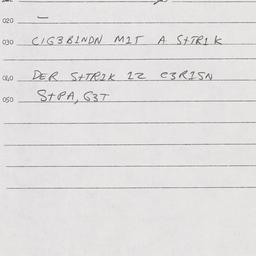 020 —
030 C1G3B1NDN M1T A S+TR1K
040 DER S+TR1K 1Z C3R1SN
050 S+PA,G3T